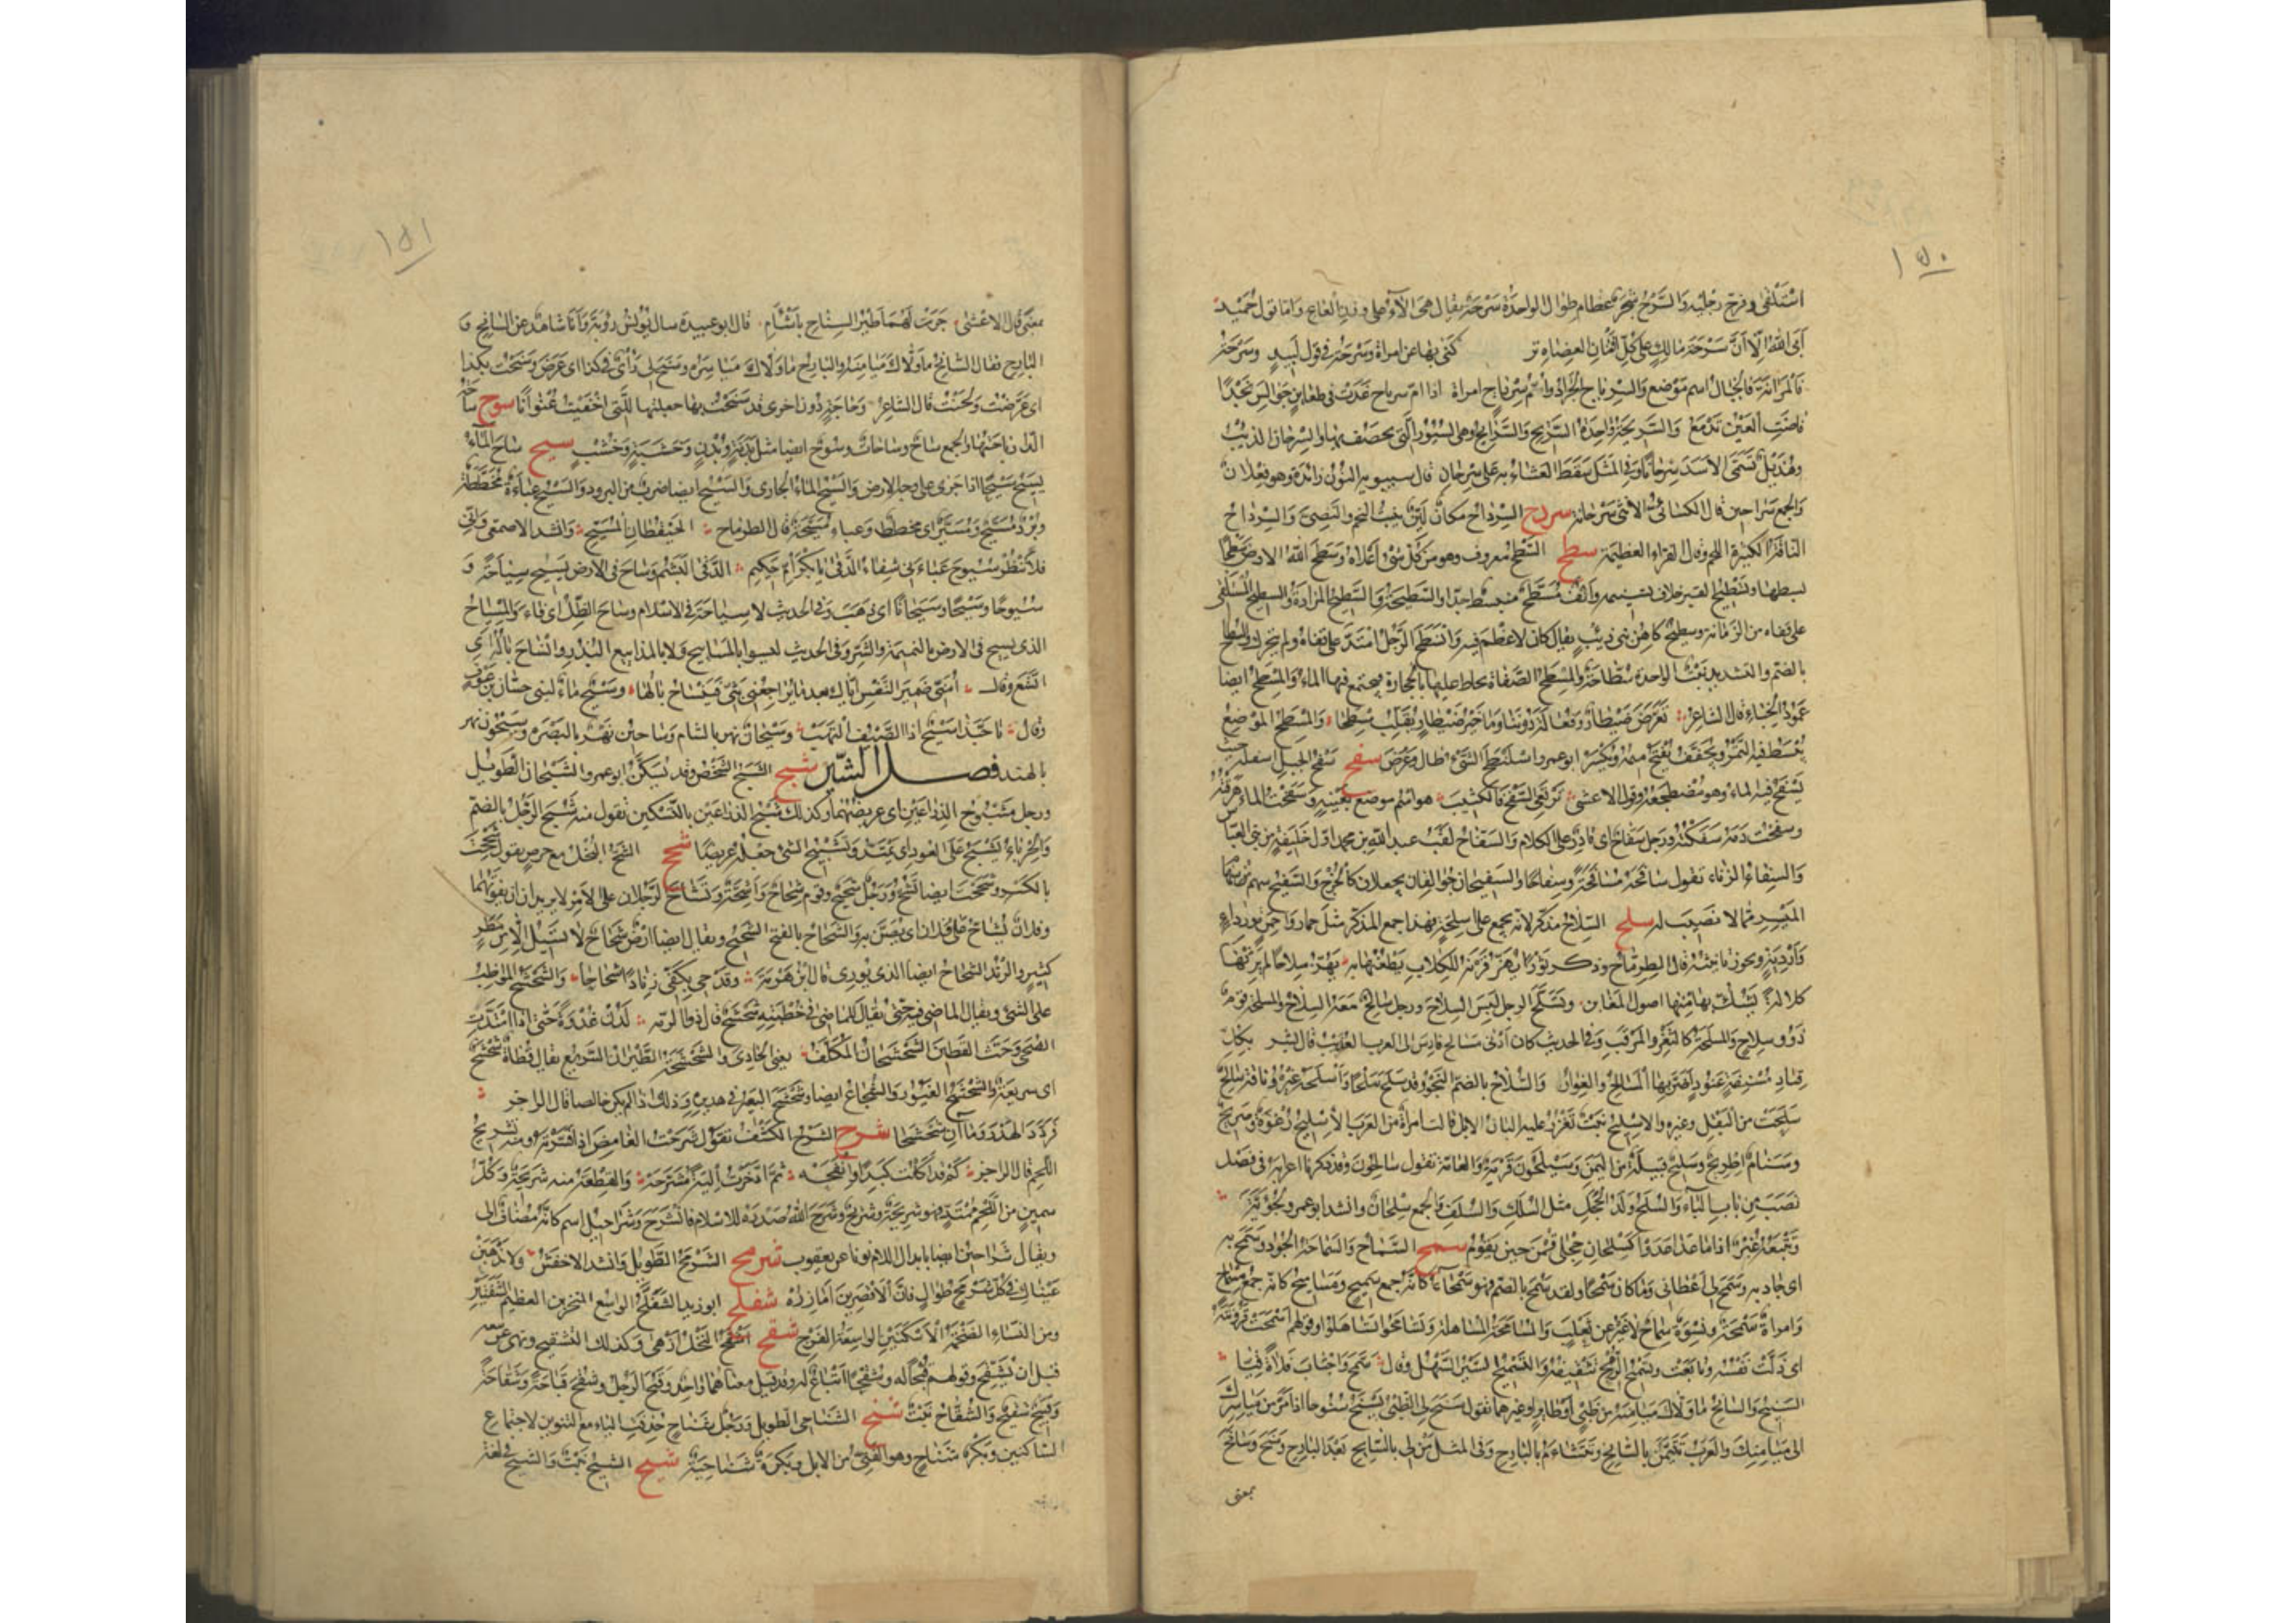 ١٥٠
استلقى وفرج رجليه والسرح شجر عظام طوال الواحدة سرحة يقال هى الآء على وزن العاع واما قول حميد
أبى الله الا أن سرحة مالك على كل افنان العضاه تر كنى بها عن امراة وسرحة فى قول لبيد وسرحة
فالمرانة فالخيال اسم موضع والسرياح الجراد وام سرياح امراة اذا ام سرياح غدت فى ظعاين جوالس نجدا
فاضت العين تدمع والسريحة واحدة السريح والسرايح وهى السيور التى يخصف بها والسرحان الذيب
وهذيل تسمى الاسد سرحانا وفى المثل سقط العشاء به على سرحان قال سيبويه النون زائدة وهو فعلان
والجمع سراحين قال الكسائى الانثى سرحانة سردح السرداح مكان لين ينبت النجم والنصى والسرداح
الناقة الكثيرة اللحم وقال الفراء العظيمة سطح السطح معروف وهو من كل شئ اعلاه وسطح الله الارض سطحا
بسطها وتسطيح القبر خلاف تسنيمه وأنف مسطح منبسط جدا والسطيحة والسطيح المزادة والسطيح المستلقى
على قفاه من الزمانة وسطيح كاهن بنى ذيب يقال كان لاعظم فيه وانسطح الرجل امتد على قفاه ولم يتحرك والسطاح
بالضم والتشديد نبت الواحدة سطاحة والمسطح الصفاة يحاط عليها بالحجارة فيجتمع فيها الماء والمسطح ايضا
عمود الخباء قال الشاعر تعرض ضيطارو فعالة دوننا وما خير ضيطار يقلب مسطحا والمسطح الموضع
يبسط فيه التمر ويجفف يفتح ميمه ويكسر ابو عمرو اسلنطح الشئ طال وعرض سفح سفح الجبل اسفله حيث
يسفح فيه الماء وهو مضطجعه وقول الاعشى ترتعى السفح فالكثيب هو اسم موضع بعينه وسفحت الماء هرقته
وسفحت دمه سفكته ورجل سفاح اى قادر على الكلام والسفاح لقب عبد الله بن محمد اول خليفة من بنى العباس
والسفاح الزناء تقول سافحة مسافحة وسفاحا والسفيحان جوالقان يجعلان كالخرج والسفيح سهم من سهام
الميسر مما لا نصيب له سلح السلاح مذكر لانه يجمع على اسلحة وهذا جمع المذكر مثل حمار واحمرة ورداء
واردية ويجوز تانيثه قال الطرماح وذكر ثورا يهز قرنه للكلاب ليطعنها به يهز سلاحا لم يرثها
كلالة يشك بها منها اصول المغابن وتسلح الرجل لبس السلاح ورجل سالح معه السلاح والمسلحة قوم
ذوو سلاح والمسلحة كالثغر والمرقب وفى الحديث كان ادنى مسالح فارس الى العرب العذيب قال بشر بكل
قياد مسنفة عنود أضر بها المسالح والغوار والسلاح بالضم النجو وقد سلح سلحا وأسلحه غيره وناقة سالح
سلحت من البقل وغيره والاسليح نبت تغزر عليه البان الابل قالت امرأة من العرب الاسليح رغوة وصريح
وسنام اطريح وسليح قبيلة من اليمن وسيلحون قرية والعامة تقول سالحون وقد ذكرنا اعرابه فى فصل
نصب من باب الباء والسلح ولد الحجل مثل السلك والسلف والجمع سلحان وانشد ابو عمرو لجوية
وتتبعه غبر اذا ما عدا عدوا كسلحان حجلى قمن حين يقوم سمح السماح والسماحة الجود وسمح به
اى جاد به وسمح لى اعطانى وما كان سمحا ولقد سمح بالضم فهو سمح وقوم سمحاء كانه جمع سميح ومساميح كانه جمع مسماح
وامراة سمحة ونسوة سماح لا غير عن ثعلب والمسامحة المساهلة وتسامحوا تساهلوا وقولهم اسمحت قرونته
اى ذلت نفسه وتابعت وتسميح الرمح تثقيفه والتسميح السير السهل وقال سمح واجتاب فلاة قيا
السنيح والسانح ما ولاك ميامنه من ظبى او طاير او غيرهما تقول سنح لى الظبى يسنح سنوحا اذا مر من مياسرك
الى ميامنك والعرب تتيمن بالسانح وتتشاءم بالبارح وفى المثل من لى بالسانح بعد البارح وسنح وسانح
بمعنى
١٥١
بمعنى قال الاعشى جرت لهما طير السناح باشأم قال ابو عبيدة سال يونس رؤبة وأنا شاهد عن السانح و
البارح فقال السانح ما ولاك ميامنه والبارح ما ولاك مياسره وسنح لى رأى فى كذا اى عرض وسنحت بكذا
اى عرضت ولحنت قال الشاعر وحاجة دون اخرى قد سنحت بها جعلتها للتى اخفيت عنوانا سوح ساحة
الدار باحتها والجمع ساح وساحات وسوح ايضا مثل بدنة وبدن وخشبة وخشب سيح ساح الماء
يسيح سيحا اذا جرى على وجه الارض والسيح الماء الجارى والسيح ايضا ضرب من البرود والسيح عباءة مخططة
وبرد مسيح ومسير اى مخطط وعباء مسيحة قال الطرماح وانشد الاصمعى وانى
فلا تنظر سيوح عباءتى شفاء الدقى يا بكر أم حكيم الدقى البشم وساح فى الارض يسيح سياحة و
سيوحا وسيحا وسيحانا اى ذهب وفى الحديث لا سياحة فى الاسلام وساح الظل اى فاء والمسياح
الذى يسيح فى الارض بالنميمة والشر وفى الحديث ليسوا بالمساييح ولا بالمذاييع البذر وانساح باله اى
اتسع وقال أمنى ضمير النفس اياك بعد ما يراجعنى بثى فينساح بالها وسيح ماء لبنى حسان بن عوف
وقال يا حبذا سيح اذا الصيف التهب وسيحان نهر بالشام وساحين نهر بالبصرة وسيحون نهر
بالهند فصل الشين شبح الشبح الشخص وقد يسكن ابو عمرو الشبحان الطويل
ورجل مشبوح الذراعين اى عريضهما وكذلك شبح الذراعين بالتسكين تقول منه شبح الرجل بالضم
والحرباء تشبح على العود اى يمتد وتشبيح الشئ جعله عريضا شحح الشح البخل مع حرص تقول شححت
بالكسر وشححت ايضا تشح ورجل شحيح وقوم شحاح وأشحة وتشاح الرجلان على الامر لا يريدان ان يفوتهما
وفلان يشاح على فلان اى يضن به والشحاح بالفتح الشحيح ويقال ايضا ارض شحاح لا تسيل الا من مطر
كثير والزند الشحاح ايضا الذى لا يورى قال ابن هرمة وقدحى بكفى زنادا شحاحا والشحشح المواظب
على الشئ ويقال الماضى فيه حتى يقال للماضى فى خطبته شحشح قال ذو الرمة لدن غدوة حتى اذا امتدت
الضحى وحث القطين الشحشحان المكلف يعنى الحادى والشحشحة الطيران السريع يقال قطاة شحشح
اى سريعة والشحشح الغيور والشجاع ايضا وشحشح البعير فى هديره وذلك اذا لم يكن خالصا قال الراجز
فردد الهدر وما ان شحشحا شرح الشرح الكشف تقول شرحت الغامض اذا فسرته ومنه تشريح
اللحم قال الراجز كم قد اكلت كبدا وانفحه ثم ادخرت الية مشرحة والقطعة منه شريحة وكل
سمين من اللحم ممتد فهو شريحة وشريح وشرح الله صدره للاسلام فانشرح وشراحيل اسم كانه مضاف الى
ويقال شراحين ايضا بابدال اللام نونا عن يعقوب شرمح الشرمح الطويل وانشد الاخفش ولا تذهبن
عيناك فى كل شرمح طوال فان الاقصرين أمازره شفلح ابو زيد الشفلح الواسع المنخرين العظيم الشفتين
ومن النساء الضخمة الاسكتين الواسعة الفرج شقح اشقح النخل ازهى وكذلك التشقيح ونهى عن بيعه
قبل ان يشقح وقولهم قبحا له وشقحا اتباع له وقد قيل معناهما واحد وقبح الرجل وشقح قباحة وشقاحة
وقبيح شقيح والشقاح نبت شنح الشناحى الطويل ورجل شناح حذفت الياء مع التنوين لاجتماع
الساكنين وبكر شناح وهو الفتى من الابل وبكرة شناحية شيح الشيح نبت والشيح فى لغة